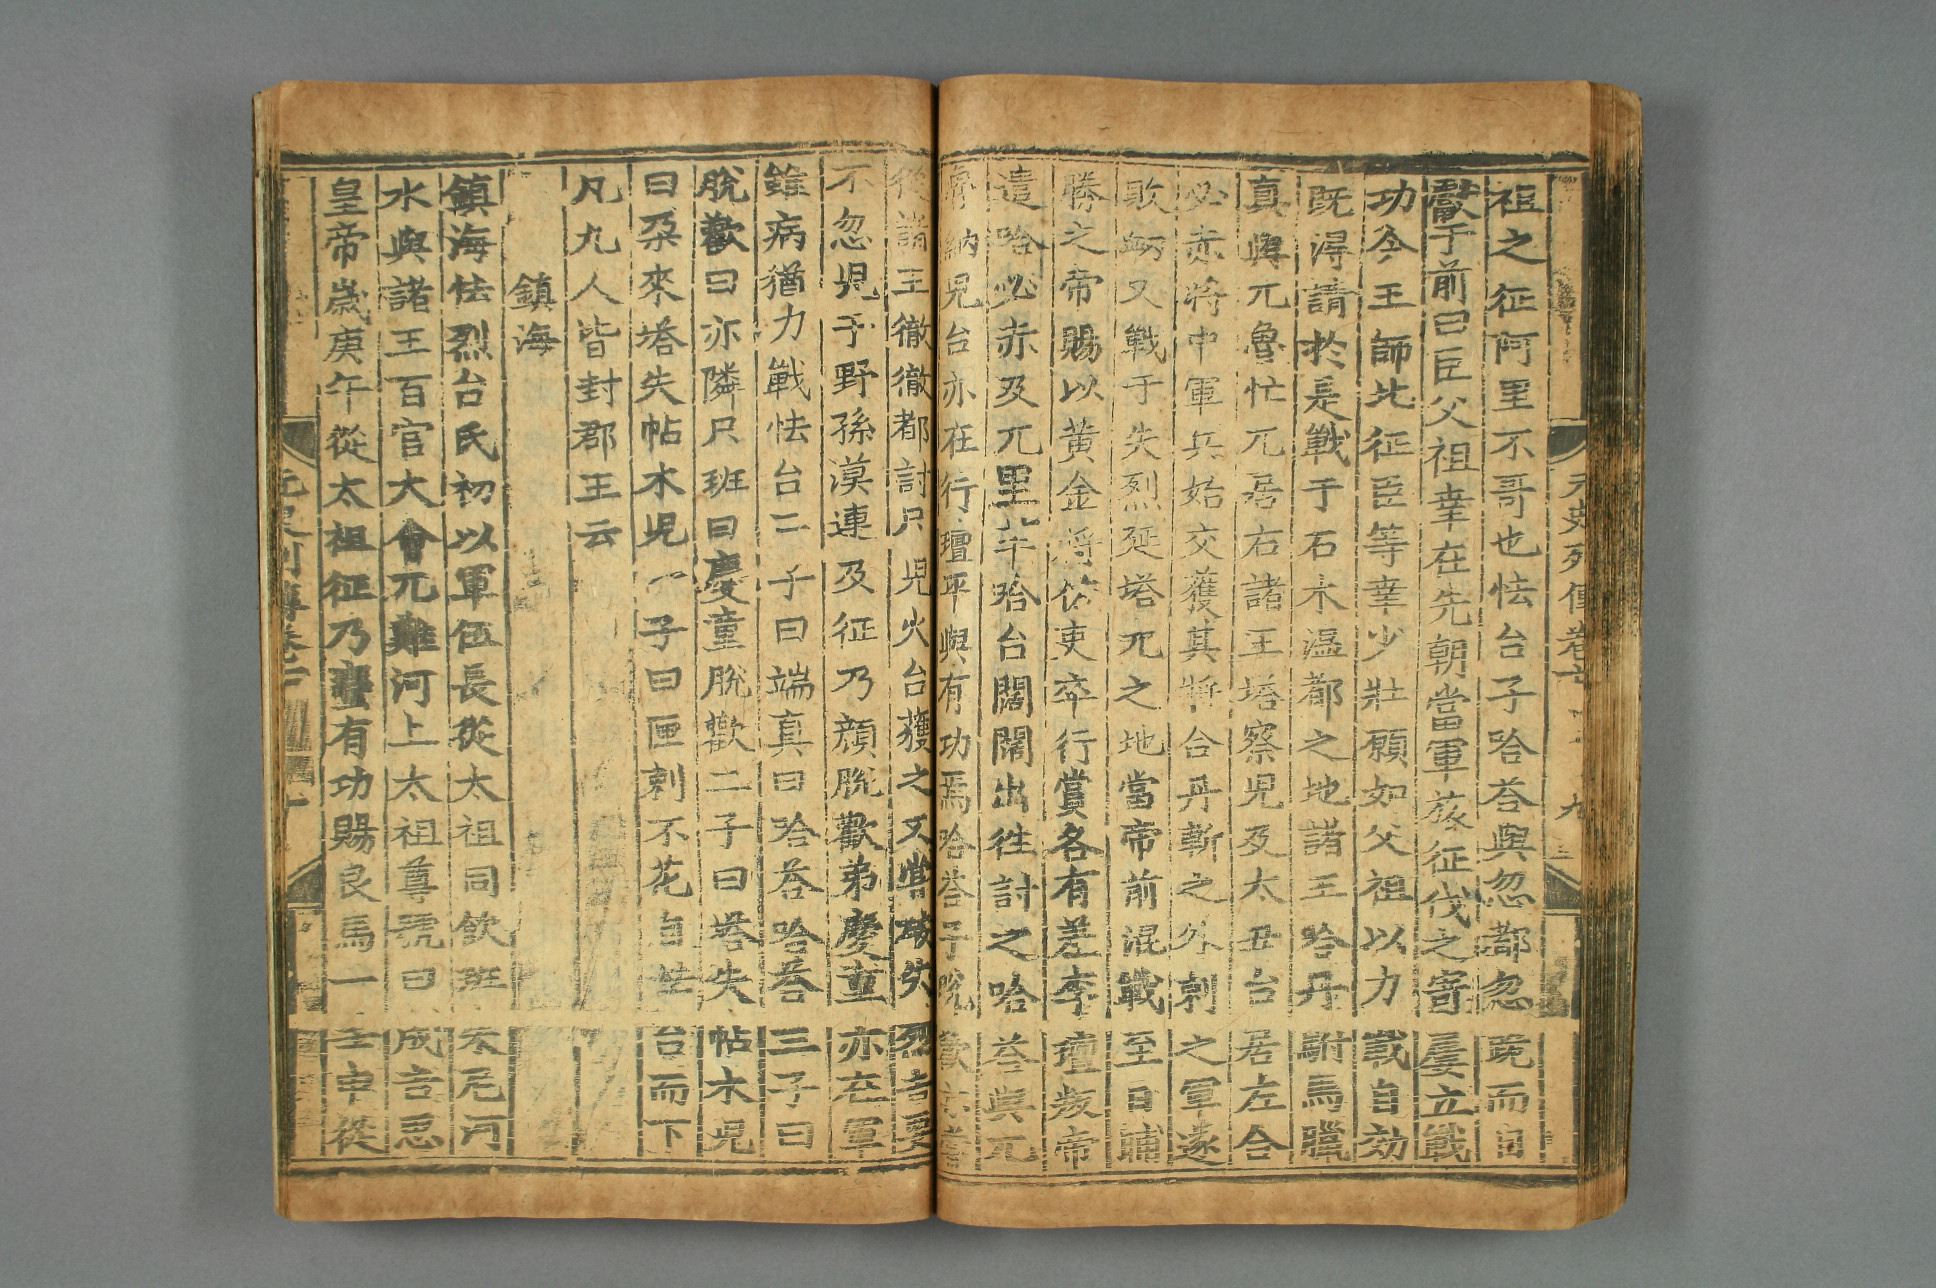 元史列傳卷七
祖之征阿里不哥也怯台子哈荅與忽都忽跪而自
獻于前曰臣父祖幸在先朝當軍旅征伐之寄屢立戰
功今王師北征臣等幸少壯願如父祖以力戰自効
既得請於是戰于石木溫都之地諸王哈丹駙馬臘
真與兀魯忙兀居右諸王塔察兒及太丑台居左合
必赤將中軍兵始交獲其將合丹斬之外剌之軍遂
敗衂又戰于失烈延塔兀之地當帝前混戰至日晡
勝之帝賜以黃金將佐吏卒行賞各有差李璮叛帝
遣哈必赤及兀里羊哈台闊闊出往討之哈荅與兀
納兒台亦在行璮平與有功焉哈荅子脫歡亦嘗
從諸王徹徹都討只兒火台獲之又嘗破失烈吉要
不忽兒于野孫漠連及征乃顏脫歡弟慶童亦在軍
雖病猶力戰怯台二子曰端真曰哈荅哈荅三子曰
脫歡曰亦隣只班曰慶童脫歡二子曰塔失帖木兒
曰朶來塔失帖木兒 子曰匣剌不花自 台而下
凡九人皆封郡王云
鎮海
鎮海怯烈台氏初以軍伍長從太祖同飲班朱尼河
水與諸王百官大會兀難河上太祖尊號曰成吉思
皇帝歲庚午從太祖征乃蠻有功賜良馬一壬申從